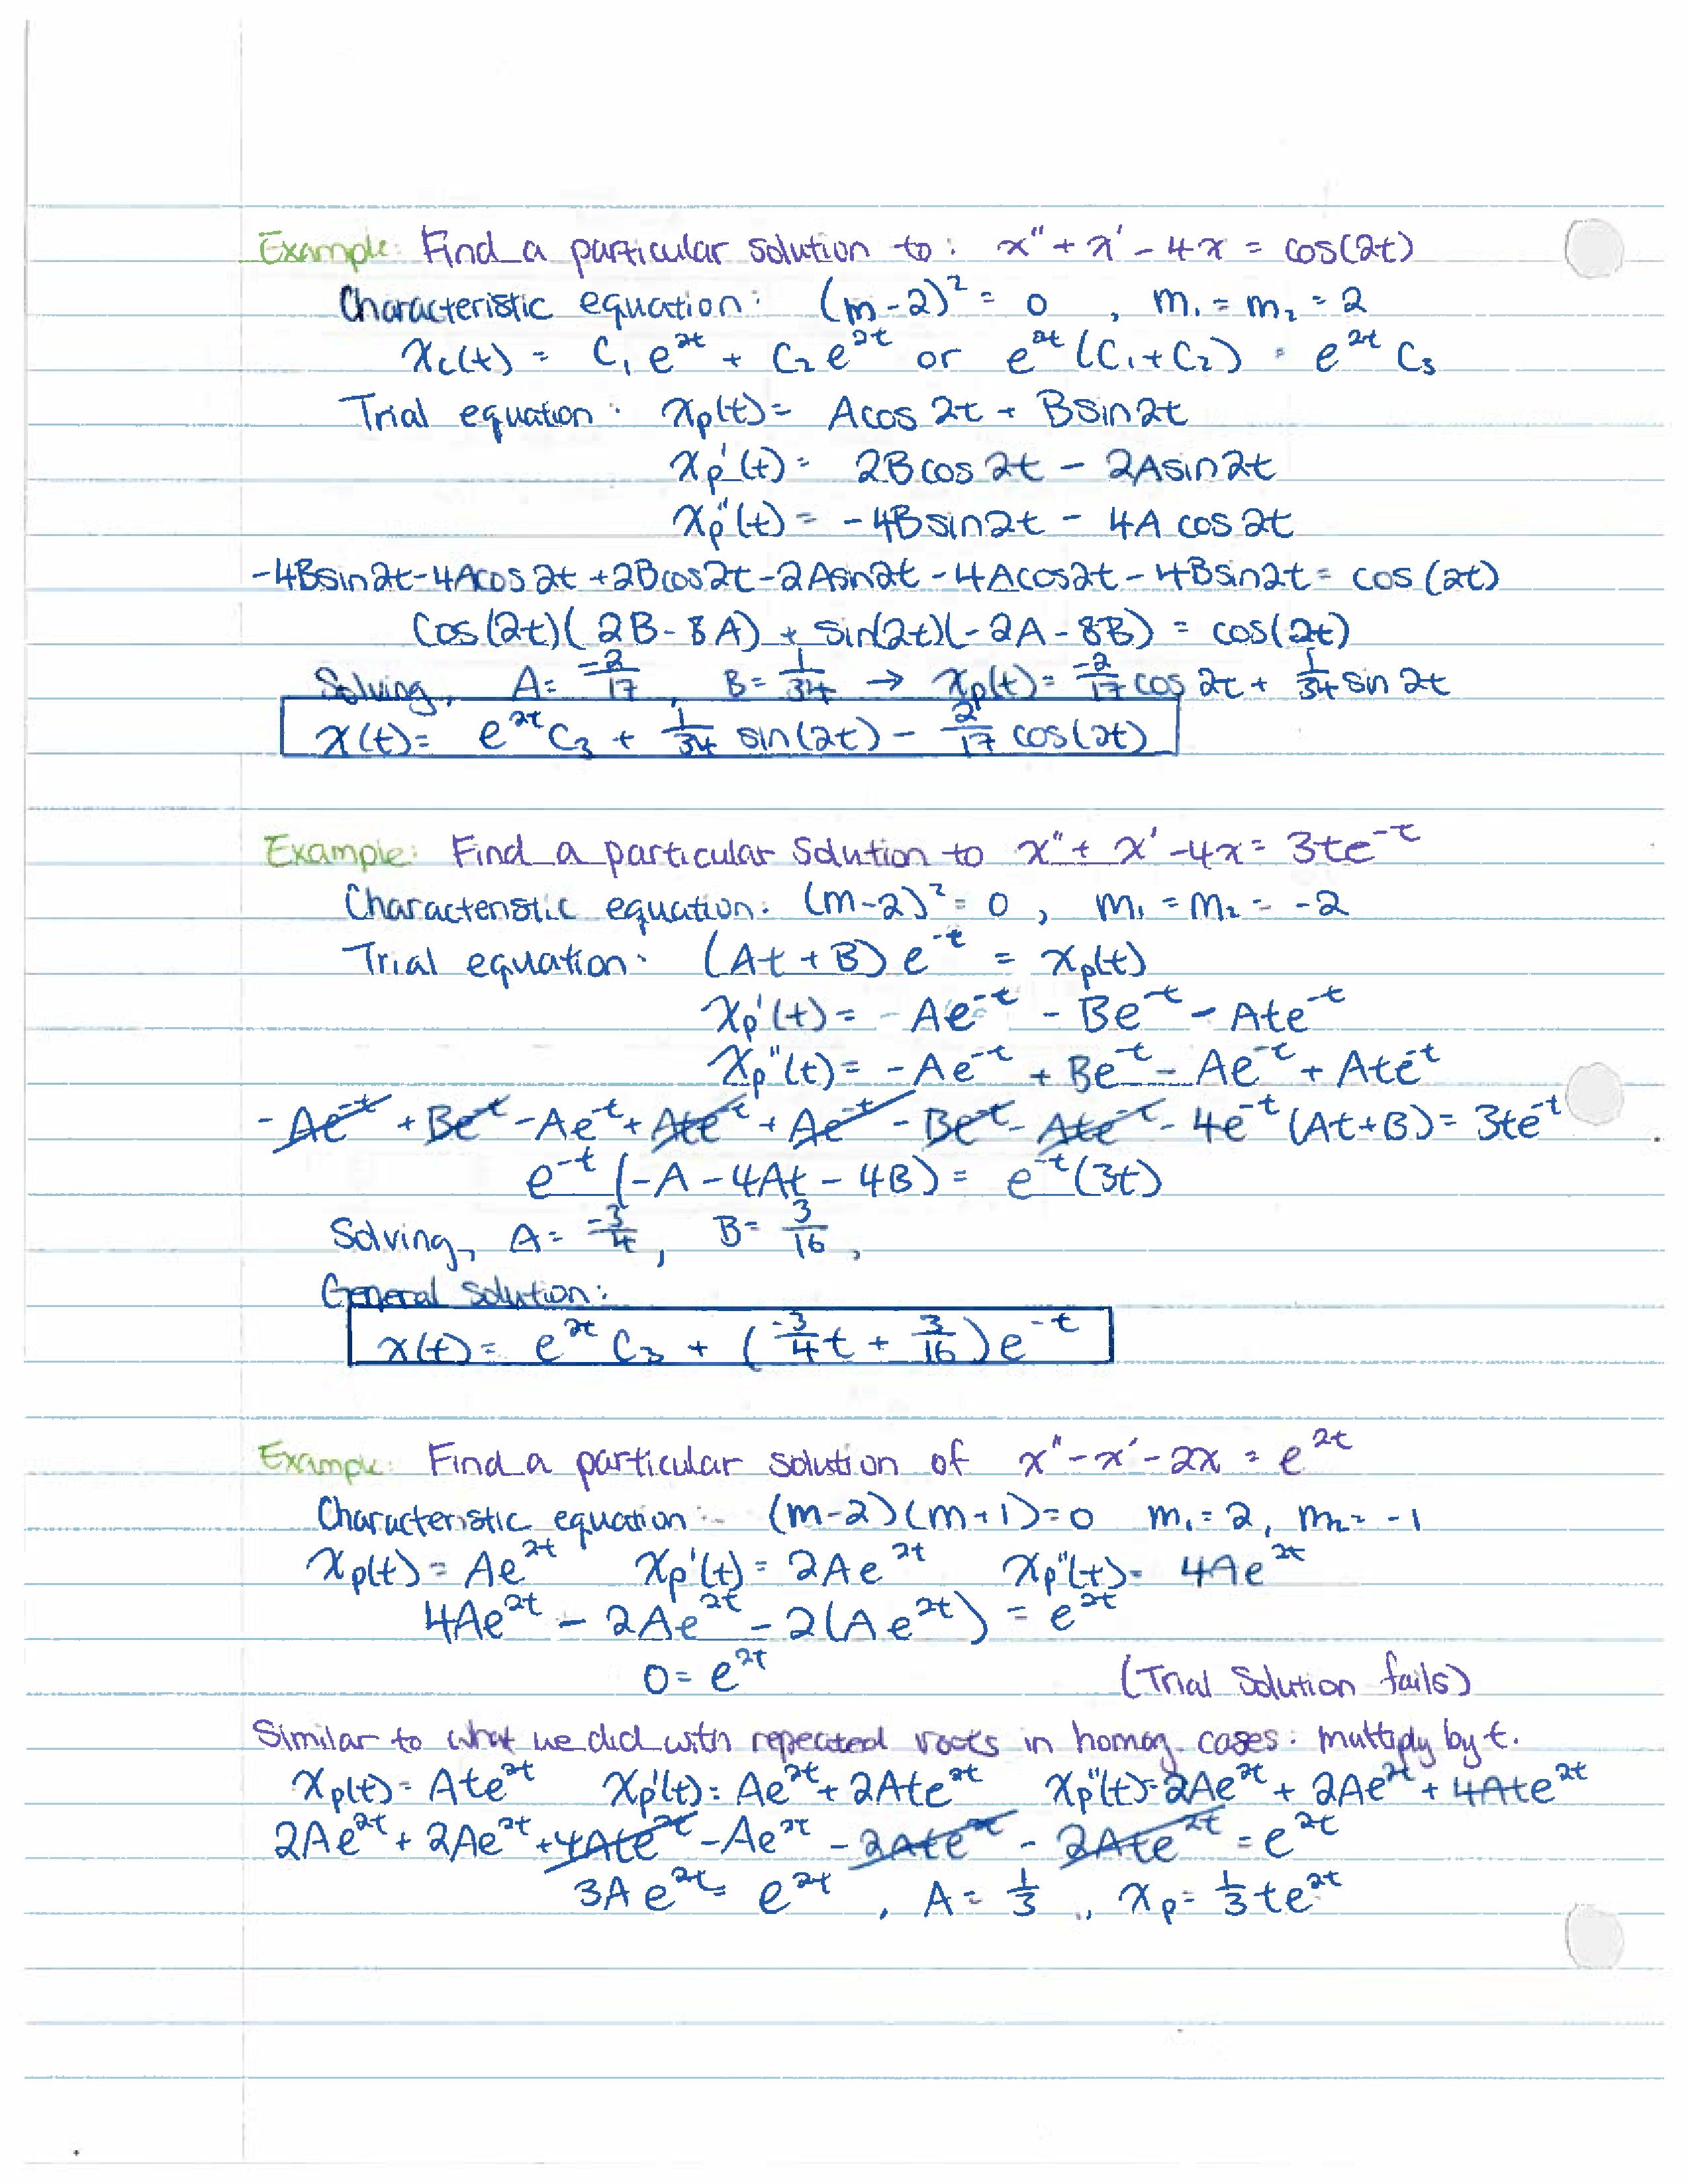 Example: Find a particular solution to: x'' + x' - 4x = cos(2t)
Characteristic equation: (m-2)² = 0 , m₁ = m₂ = 2
x_c(t) = C₁e^2t + C₂e^2t or e^2t(C₁+C₂) = e^2t C₃
Trial equation: x_p(t) = Acos2t + Bsin2t
x_p'(t) = 2Bcos2t - 2Asin2t
x_p''(t) = -4Bsin2t - 4Acos2t
-4Bsin2t-4Acos2t+2Bcos2t-2Asin2t-4Acos2t-4Bsin2t = cos(2t)
Cos(2t)(2B-8A) + sin(2t)(-2A-8B) = cos(2t)
Solving, A = -2/17, B = 1/34 → x_p(t) = -2/17 cos2t + 1/34 sin2t
x(t) = e^2t C₃ + 1/34 sin(2t) - 2/17 cos(2t)
Example: Find a particular solution to x'' + x' - 4x = 3te^-t
Characteristic equation: (m-2)² = 0 , m₁ = m₂ = -2
Trial equation: (At+B)e^-t = x_p(t)
x_p'(t) = Ae^-t - Be^-t - Ate^-t
x_p''(t) = -Ae^-t + Be^-t - Ae^-t + Ate^-t
-Ae^-t + Be^-t - Ae^-t + Ate^-t + Ae^-t - Be^-t - Ate^-t - 4e^-t(At+B) = 3te^-t
e^-t(-A-4At-4B) = e^-t(3t)
Solving, A = -3/4, B = 3/16,
General solution:
x(t) = e^2t C₃ + (-3/4 t + 3/16)e^-t
Example: Find a particular solution of x'' - x' - 2x = e^2t
Characteristic equation: (m-2)(m+1)=0 m₁ = 2, m₂ = -1
x_p(t) = Ae^2t x_p'(t) = 2Ae^2t x_p''(t) = 4Ae^2t
4Ae^2t - 2Ae^2t - 2(Ae^2t) = e^2t
0 = e^2t (Trial Solution fails)
Similar to what we did with repeated roots in homog. cases: multiply by t.
x_p(t) = Ate^2t x_p'(t) = Ae^2t + 2Ate^2t x_p''(t) = 2Ae^2t + 2Ae^2t + 4Ate^2t
2Ae^2t + 2Ae^2t + 4Ate^2t - Ae^2t - 2Ate^2t - 2Ate^2t = e^2t
3Ae^2t = e^2t , A = 1/3 , x_p = 1/3 te^2t